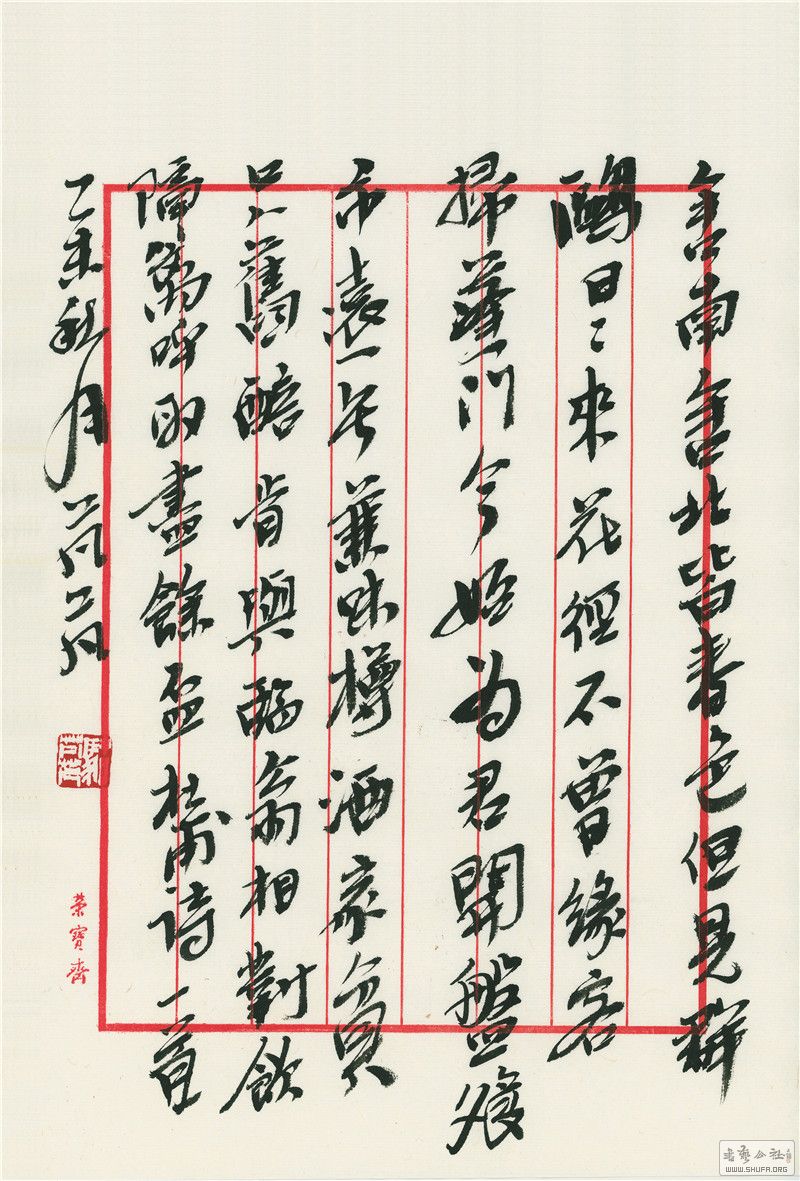 舍南舍北皆春色但見群
鷗日々來花徑不曾緣客
掃蓬門今始為君開盤飧
市遠無兼味樽酒家貧
只舊醅肯與鄰翁相對飲
隔籬呼取盡餘盃杜甫詩一首
乙未秋月
榮寶齋
書藝公社
WWW.SHUFA.ORG